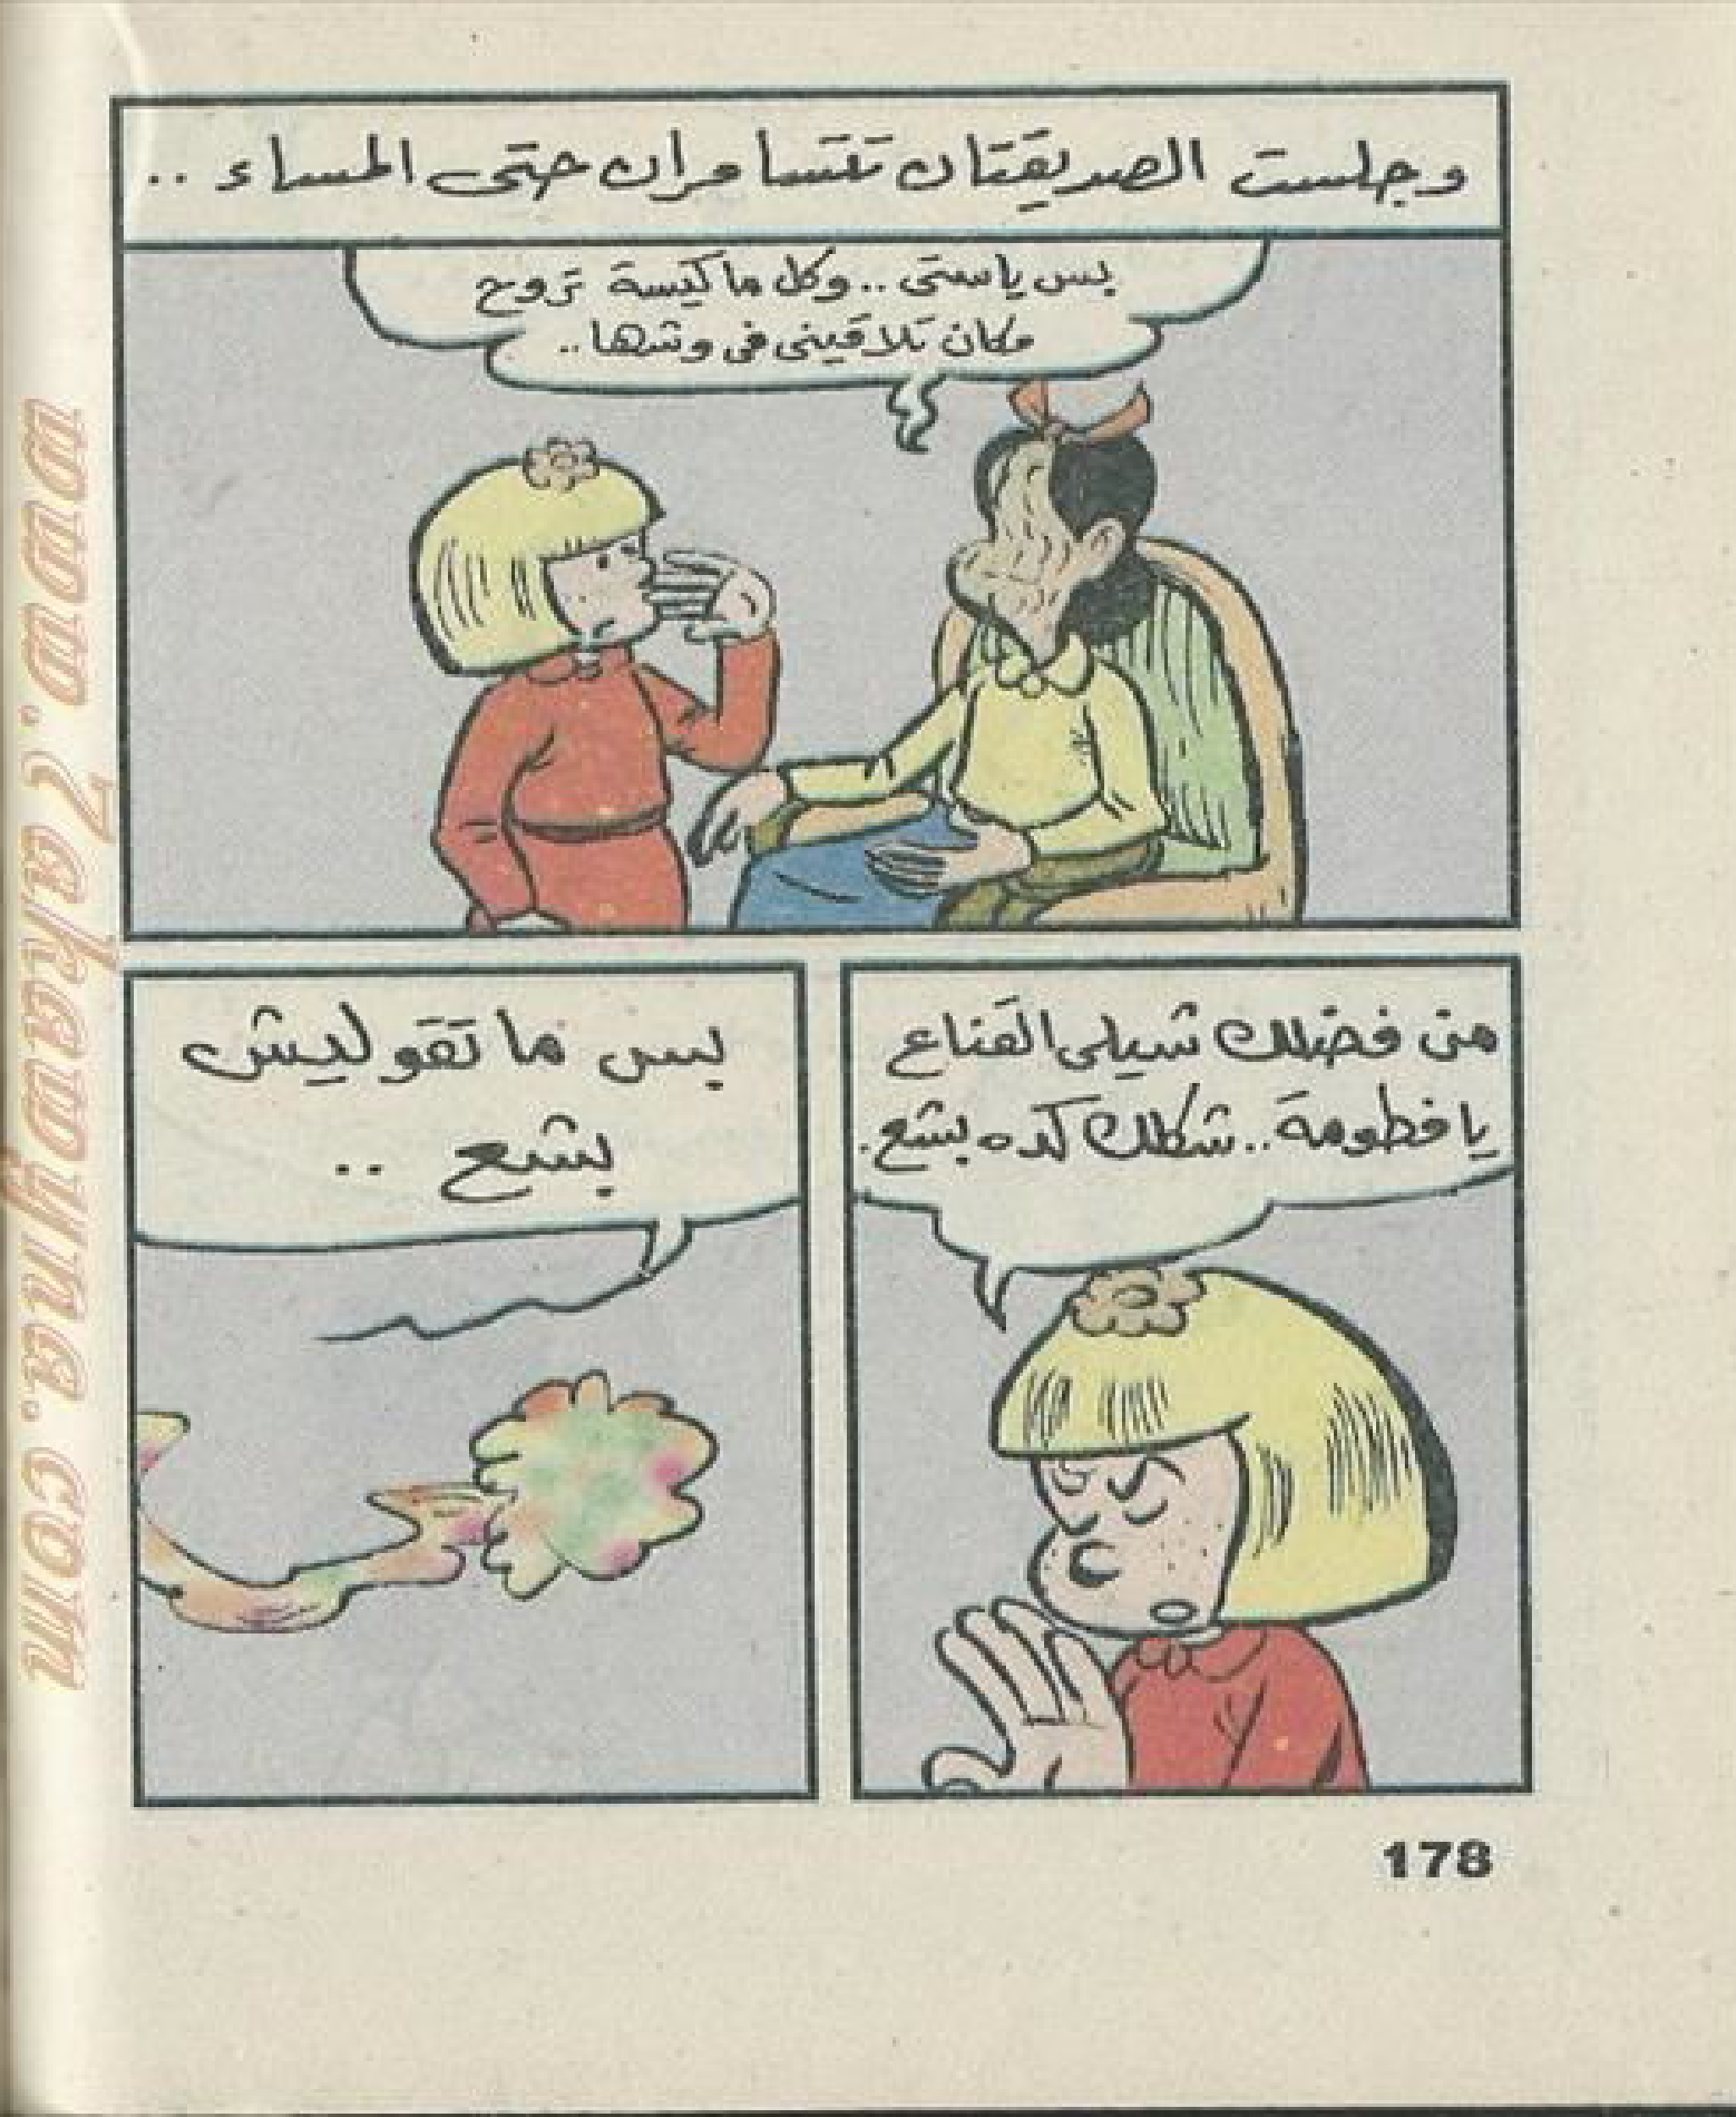 وجلست الصديقتان تتسامران حتى المساء ..
بس ياستى .. وكل ما كيسة تروح
مكان تلاقينى فى وشها ..
من فضلك شيلى القناع
يا فطومة .. شكلك كده بشع .
بس ما تقوليش
بشع ..
178
www.7akawyna.com